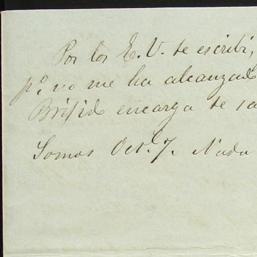 Por los E. V. te escribí,
pº. no me ha alcanzad
Brifid encarga te sa
Somos Oct. 7. Nada